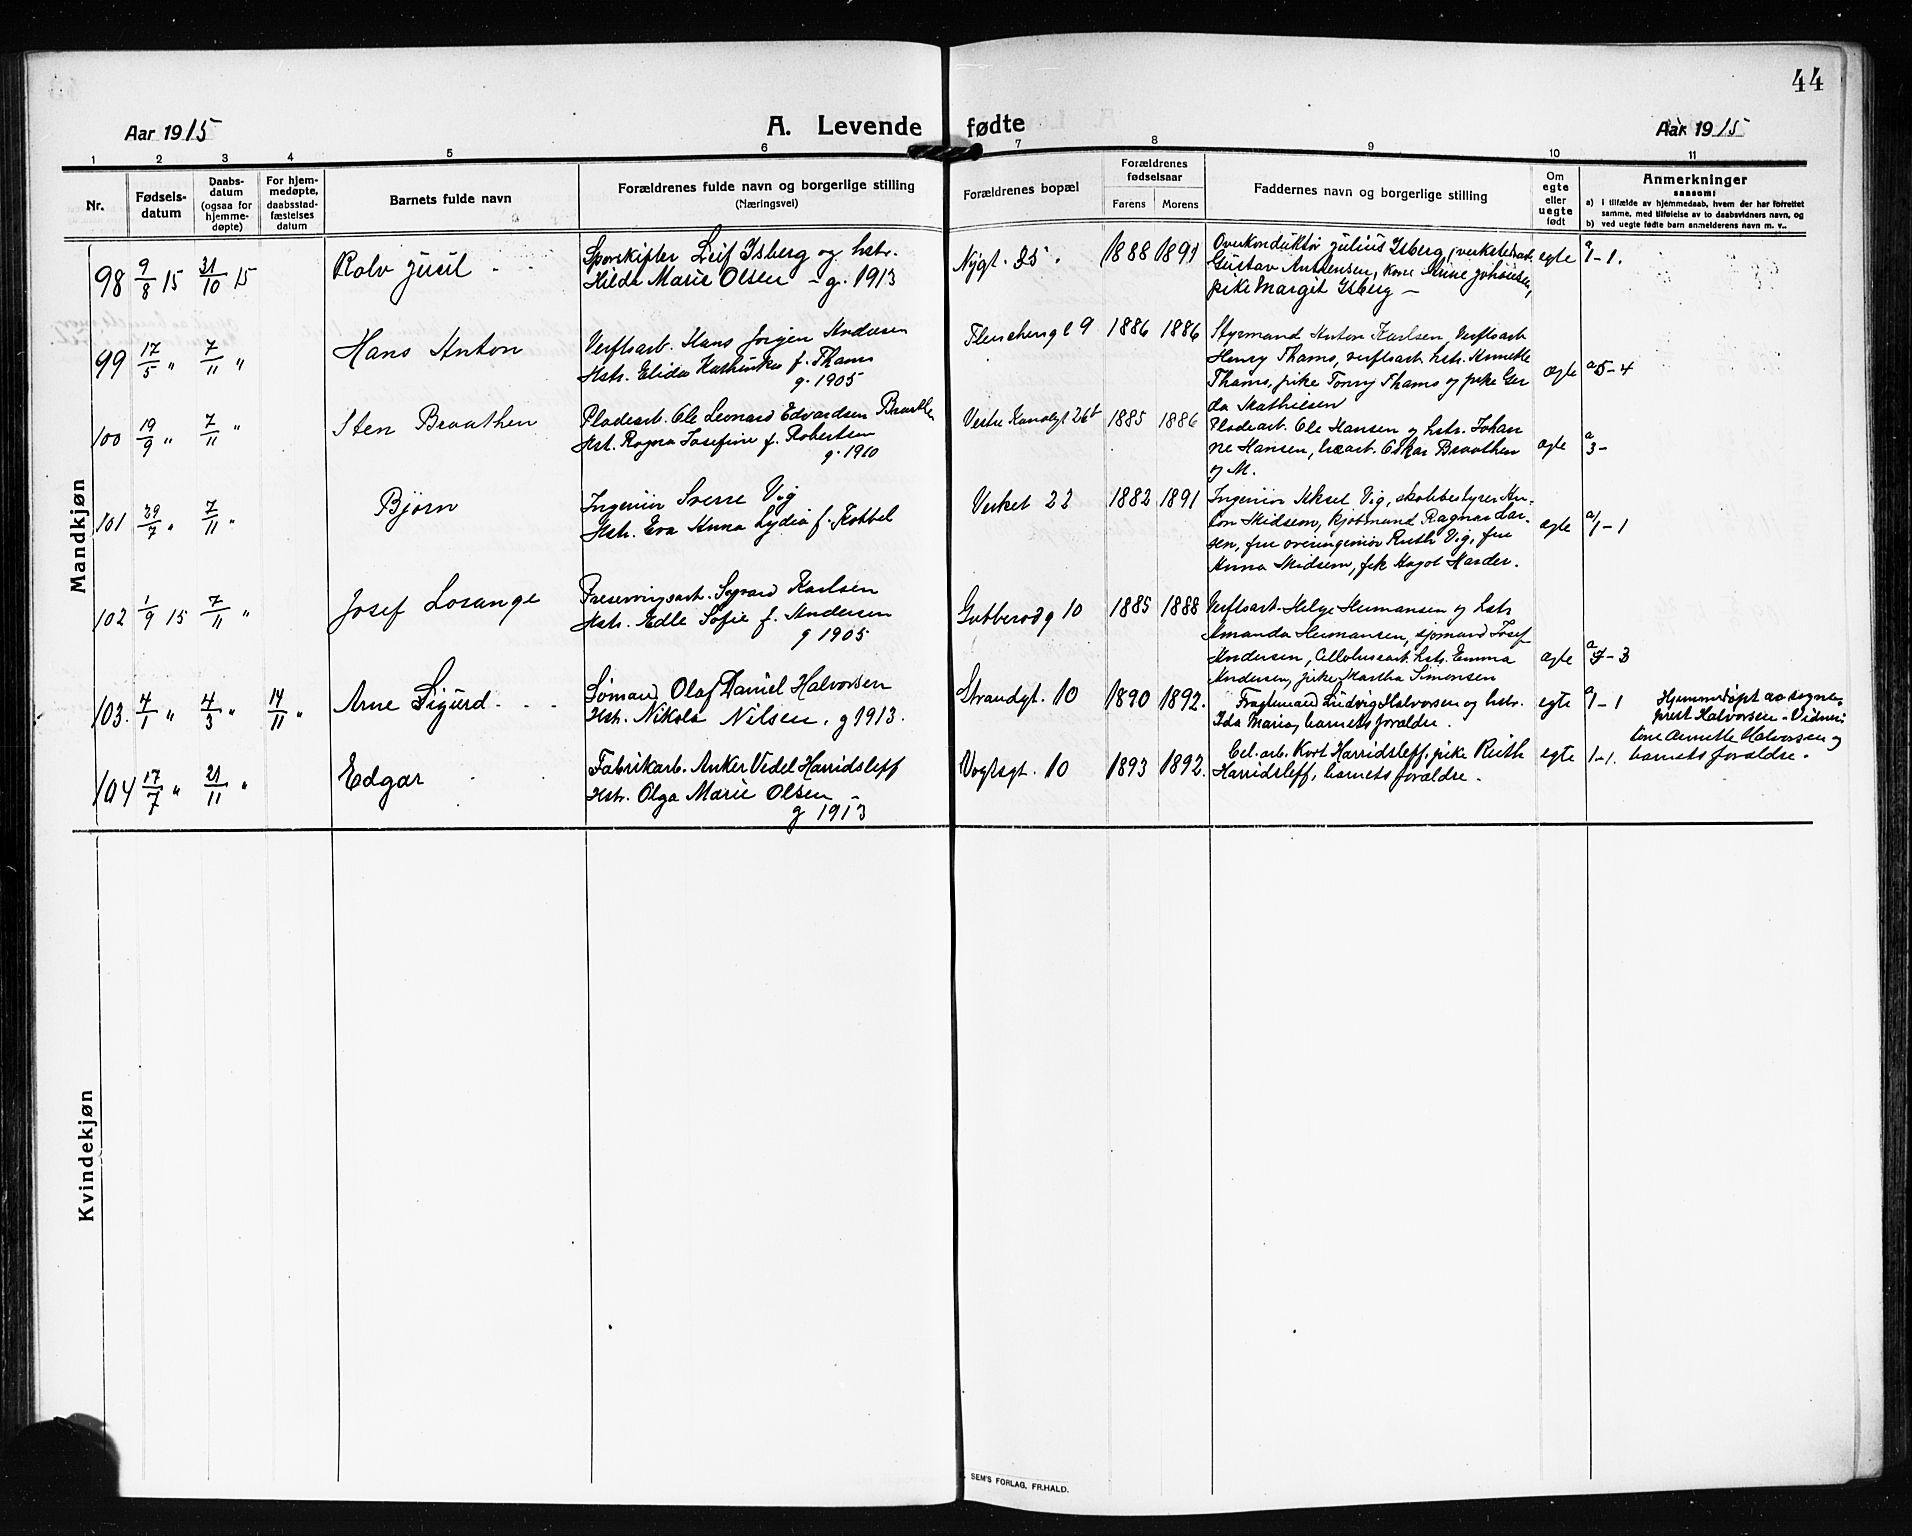 44
Aar 1915
A. Levende fødte
Aar 1915
1 2 3 4 5 6 7 8 9 10 11
Nr.
Fødsels-
datum
Daabs-
datum
(ogsaa for
hjemme-
døpte)
For hjem-
medøpte,
daabsstad-
fæstelses
datum
Barnets fulde navn
Forældrenes fulde navn og borgerlige stilling
(Næringsvei)
Forældrenes bopæl
Forældrenes
fødselsaar
Farens Morens
Faddernes navn og borgerlige stilling
Om
egte
eller
uegte
født
Anmerkninger
saasom:
a) i tilfælde av hjemmedaab, hvem der har forrettet
samme, med tilføielse av to daabsvidners navn, og
b) ved uegte fødte barn anmelderens navn m. v..
Mandkjøn
98 9/8 15 31/10 15
Rolv Juul
Sporskifter Leif Isberg og hstr.
Hilda Marie Olsen - g. 1913
Nygt. 35.
1888 1891
Overkonduktør Julius Isberg,
Gustav Antonsen, kone
pike Margit Isberg -
egte
1-1.
99 17/5 " 7/11 "
Hans Anton
Verftsarb. Hans Jørgen Andersen
Hstr. Elida Kathinka f. Thams
g. 1905
9
1886 1886
Styrmand Anton Karlsen, Verftsarb
Henry Thams, verftsarb. hstr. Annette
Thams, pike Tonny Thams og pike Ger
da Mathiesen
egte
a 5-4
100 19/9 " 7/11 "
Sten Braathen
Pladearb. Ole Leonard Edvardsen Braathen
Hst. Ragna Josefine f. Robertsen
g. 1910
Vestre Kanalgt 26b
1885 1886
Pladearb. Ole Hansen og hstr. Johan
ne Hansen, Oskar Braathen
og M.
egte
a 3-
101 29/7 " 7/11 "
Bjørn
Ingeniør Sverre Vig
Hstr. Eva Anna Lydia f. Kobbel
Verket 22
1882 1891
Ingeniør Aksel Vig, skolebestyrer An-
ton Midsem, kjøbmand Ragnar Lar-
sen, frue overingeniør Ruth Vig, frue
Anna Midsem, frk Harder.
egte
a/1-1
102 1/9 15 7/11 "
Josef Losange
Preservingsarb. Sigvard Karlsen
Hstr. Edle Sofie f. Andersen
g 1905
Gubberødg 10
1885 1888
Verftsarb. Helge Hermansen og hstr
Amanda Hermansen, sjømand Josef
Andersen, Cellulosearb. hstr. Emma
Andersen, pike Martha Simonsen
egte
a 7-3
103. 4/1 " 4/3 " 14/11 "
Arne Sigurd
Sømand Olaf Daniel Halvorsen
Hst. Nikola Nilsen. g 1913.
Strandgt. 10
1890 1892.
Fragtemand Ludvig Halvorsen og hstr.
Ida Maria, barnets forældre.
egte
a 1-1
Hjemmedøpt av sogne-
prest Halvorsen - Vidner:
Annette Halvorsen og
barnets forældre.
104 17/7 " 21/11 "
Edgar
Fabrikarb. Anker Vedel Harridsleff
Hstr. Olga Marie Olsen
g 1913
Vogtsgt. 10
1893 1892.
Cel. arb. Kort Harridsleff, pike Ruth
Harridsleff, barnets forældre.
egte
1-1.
Kvindekjøn
SEM'S FORLAG, FR.HALD.